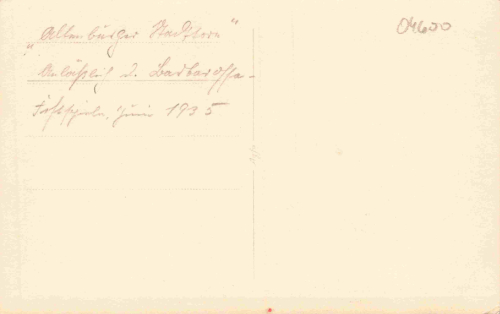 04600
"Altenburger Stadttore"
Anläßlich d. Barbarossa-
Festspiele, Juni 1935